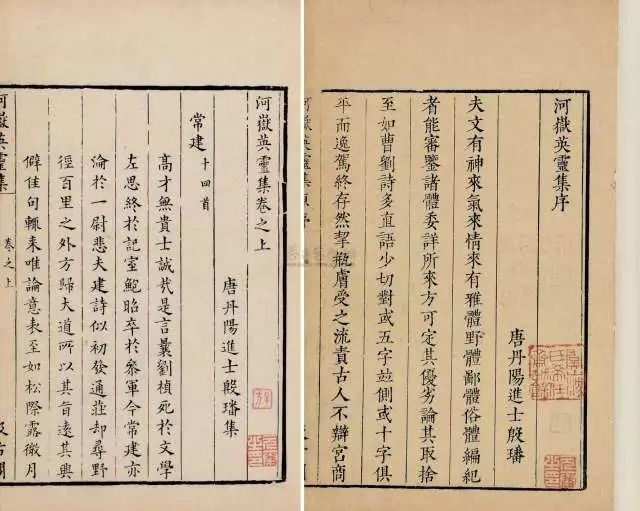 河嶽英靈集序
唐丹陽進士殷璠
夫文有神來氣來情來有雅體野體鄙體俗體編紀
者能審鑒諸體委詳所來方可定其優劣論其取捨
至如曹劉詩多直語少切對或五字竝側或十字俱
平而逸駕終存然挈瓶膚受之流責古人不辯宮商
河嶽英靈集
序
河嶽英靈集卷之上
唐丹陽進士殷璠集
常建十四首
高才無貴士誠哉是言曩劉楨死於文學
左思終於記室鮑昭卒於叅軍今常建亦
淪於一尉悲夫建詩似初發通莊却尋野
徑百里之外方歸大道所以其旨遠其興
僻佳句輒来唯論意表至如松際露微月
河嶽英靈集
卷之上
汲古閣